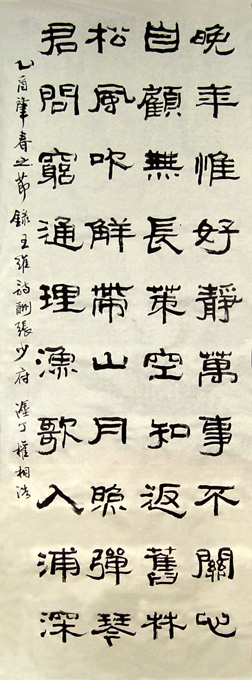 晩年惟好靜萬事不關心
自顧無長策空知返舊林
松風吹解帶山月照彈琴
君問窮通理漁歌入浦深
乙酉肇春之節錄王維詩酬張少府 權相浩